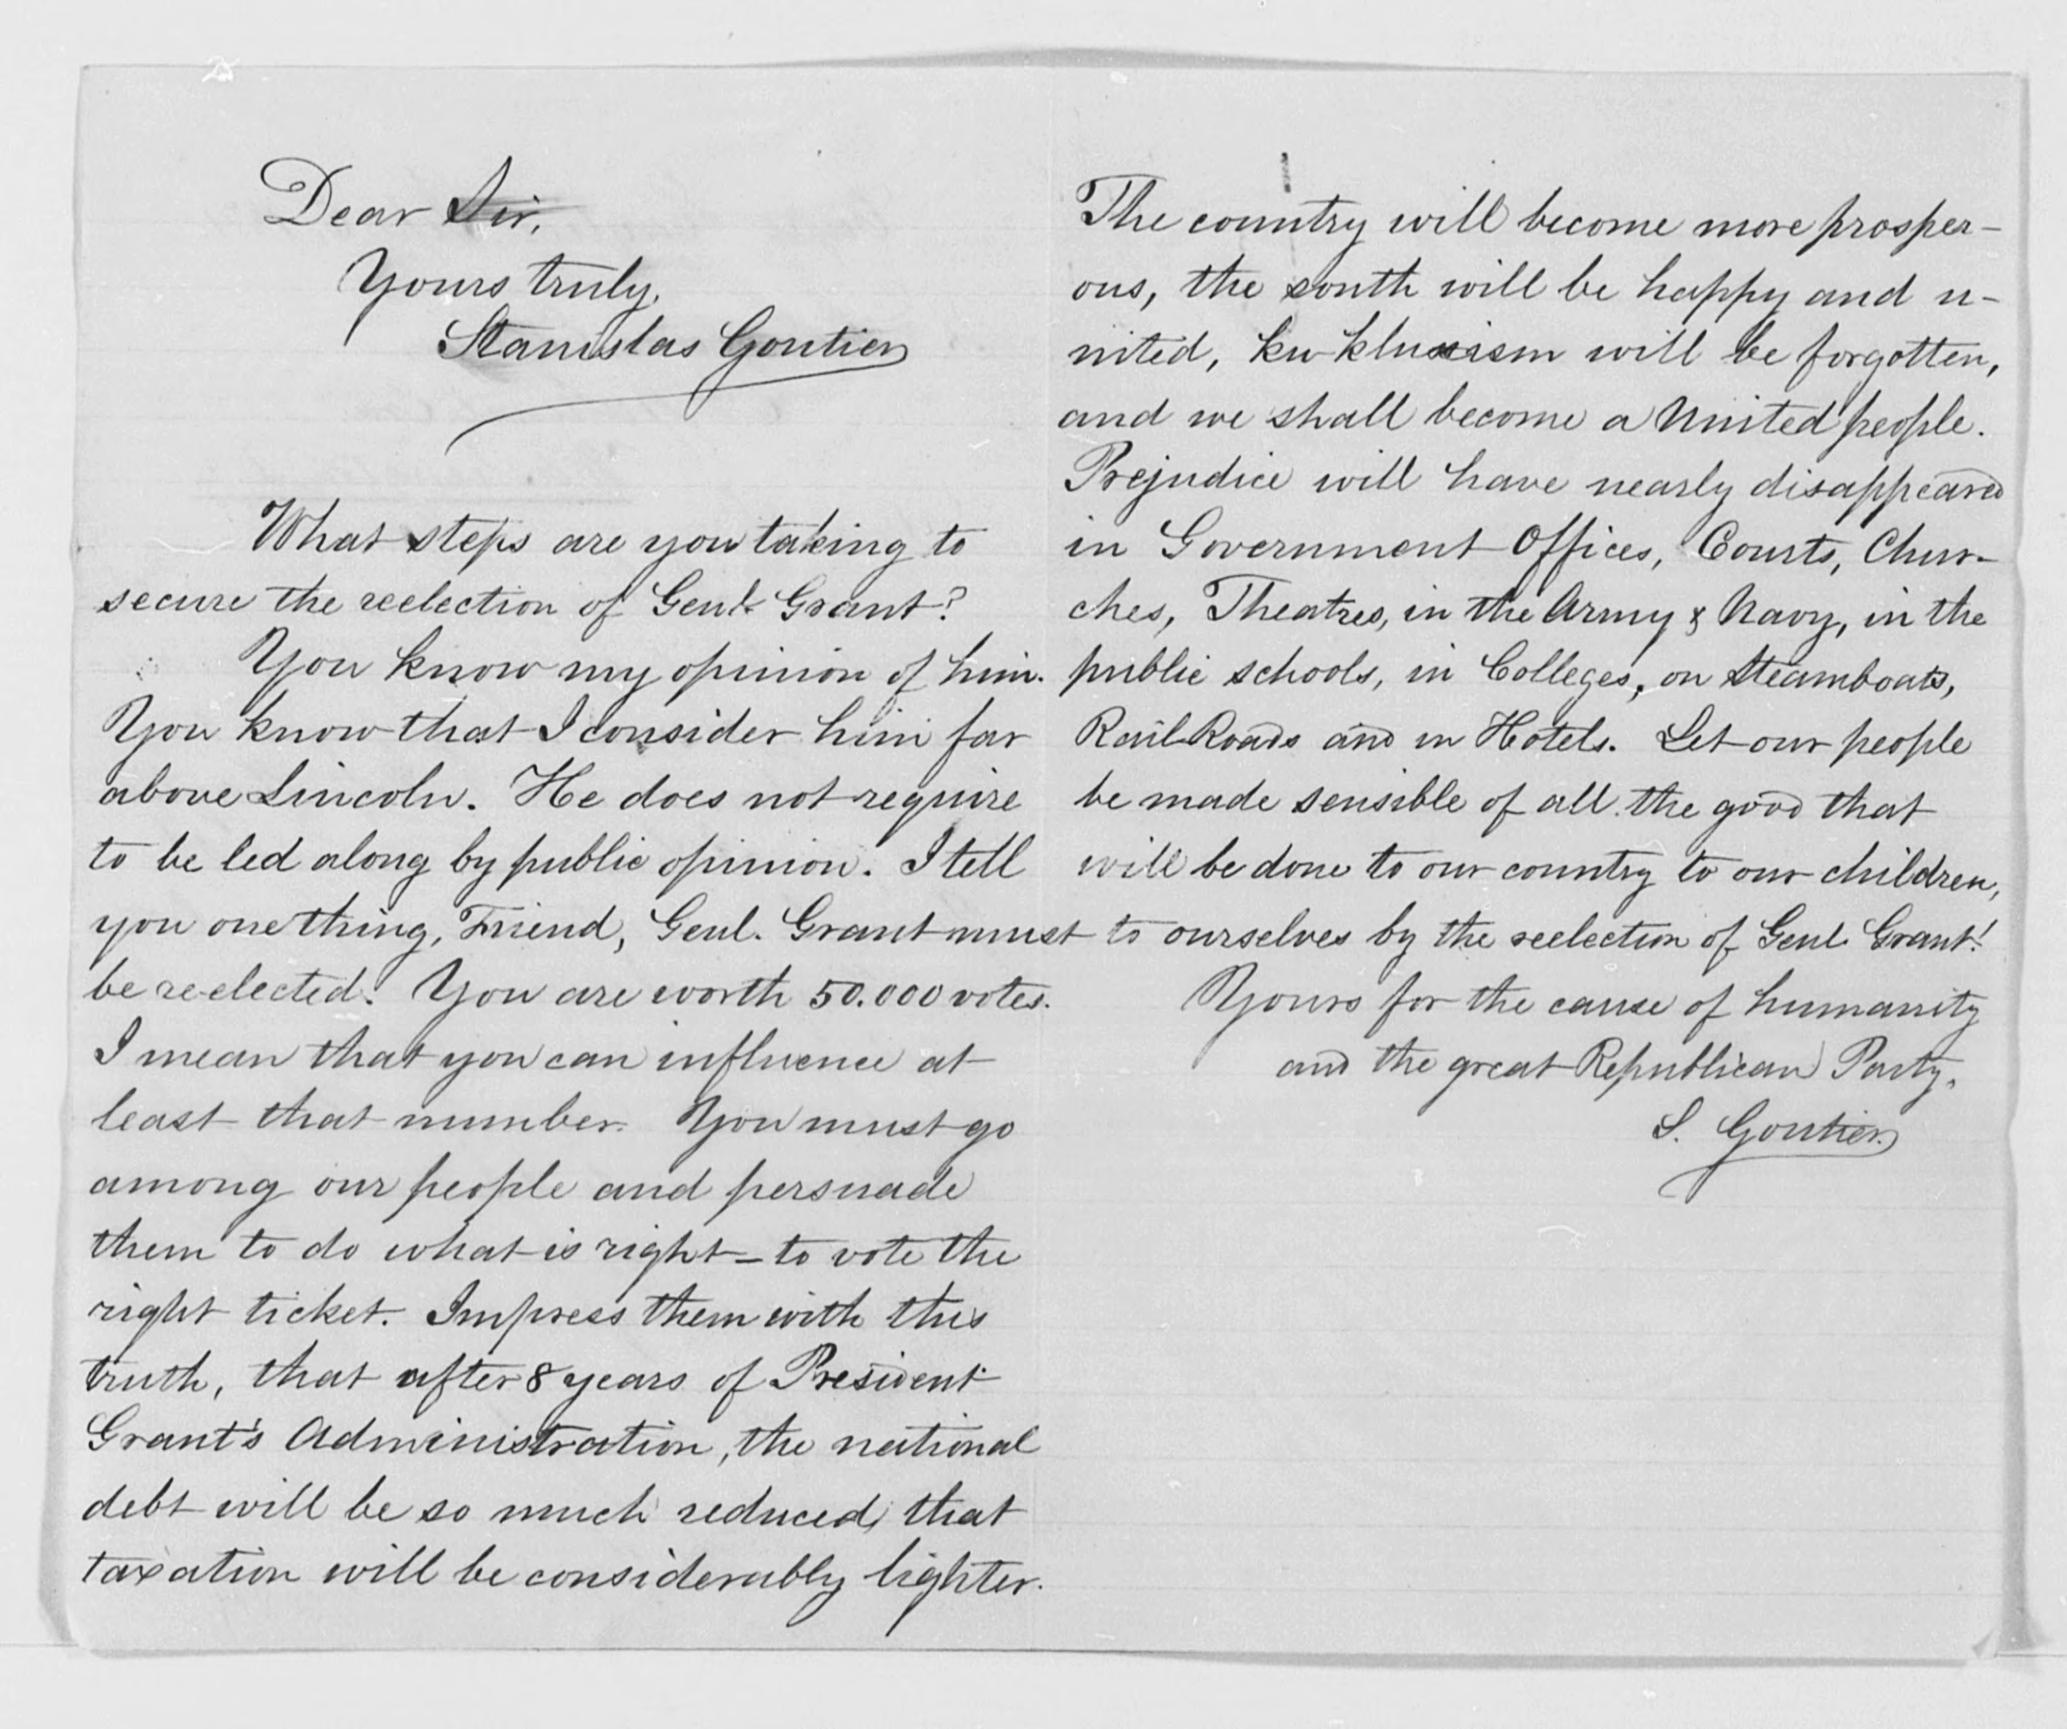 Dear Sir,
Yours truly,
Stanislas Goutier
What steps are you taking to
secure the reelection of Genl. Grant?
You know my opinion of him.
You know that I consider him far
above Lincoln. He does not require
to be led along by public opinion. I tell
you one thing, Friend, Genl. Grant must
be re-elected! You are worth 50.000 votes.
I mean that you can influence at
least that number. You must go
among our people and persuade
them to do what is right – to vote the
right ticket. Impress them with this
truth, that after 8 years of President
Grant's Administration, the national
debt will be so much reduced, that
taxation will be considerably lighter.
The country will become more prosper-
ous, the south will be happy and u-
nited, ku-kluxism will be forgotten,
and we shall become a United people.
Prejudice will have nearly disappeared
in Government Offices, Courts, Chur-
ches, Theatres, in the Army & Navy, in the
public schools, in Colleges, on Steamboats,
Rail Roads and in Hotels. Let our people
be made sensible of all the good that
will be done to our country to our children,
to ourselves by the reelection of Genl Grant!
Yours for the cause of humanity
and the great Republican Party.
S. Goutier